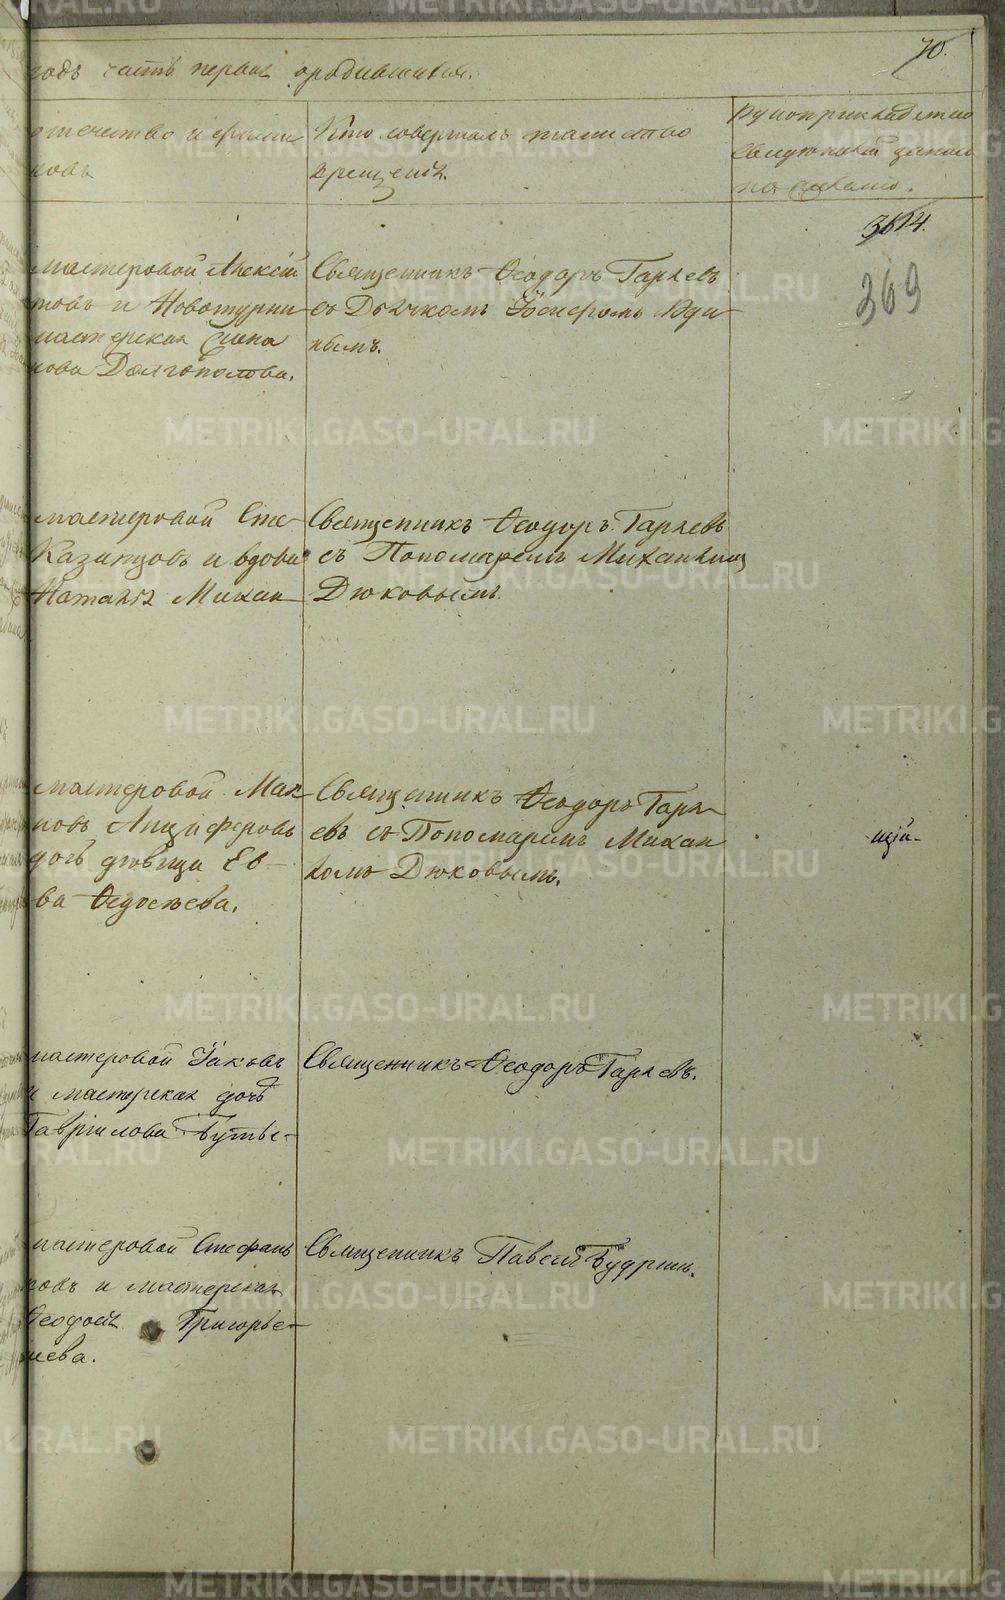 70.
годъ часть первая о родившихся.
отечество и фамил
ковъ
Кто совершалъ таинство
крещенія.
Рукоприкладство
свидѣтелей записи
по желанію.
3614.
369
мастеровой Алексѣй
товъ и Новотурин-
мастерская Степа
нова Долгополова.
Священникъ Ѳеодоръ Гаряевъ
со Дьячкомъ
нымъ.
мастеровой Сте-
Казанцовъ и вдова
Наталья Михаи-
Священникъ Ѳеодоръ Гаряевъ
съ Пономаремъ Михаиломъ
Дюковымъ.
мастеровой Мак-
мовъ Анциферовъ
дочь дѣвица Ев-
ва Ѳедосѣева.
Священникъ Ѳеодоръ Гаря-
евъ со Пономаремъ Михаи
ломъ Дюковымъ.
цій.
мастеровой Іаковъ
и мастерская дочь
Гавріилова Бутье-
Священникъ Ѳеодоръ Гаряевъ.
мастеровой Стефанъ
ковъ и мастерская
Ѳеодосья Григорье-
нева.
Священникъ Павелъ Будринъ.
METRIKI.GASO-URAL.RU